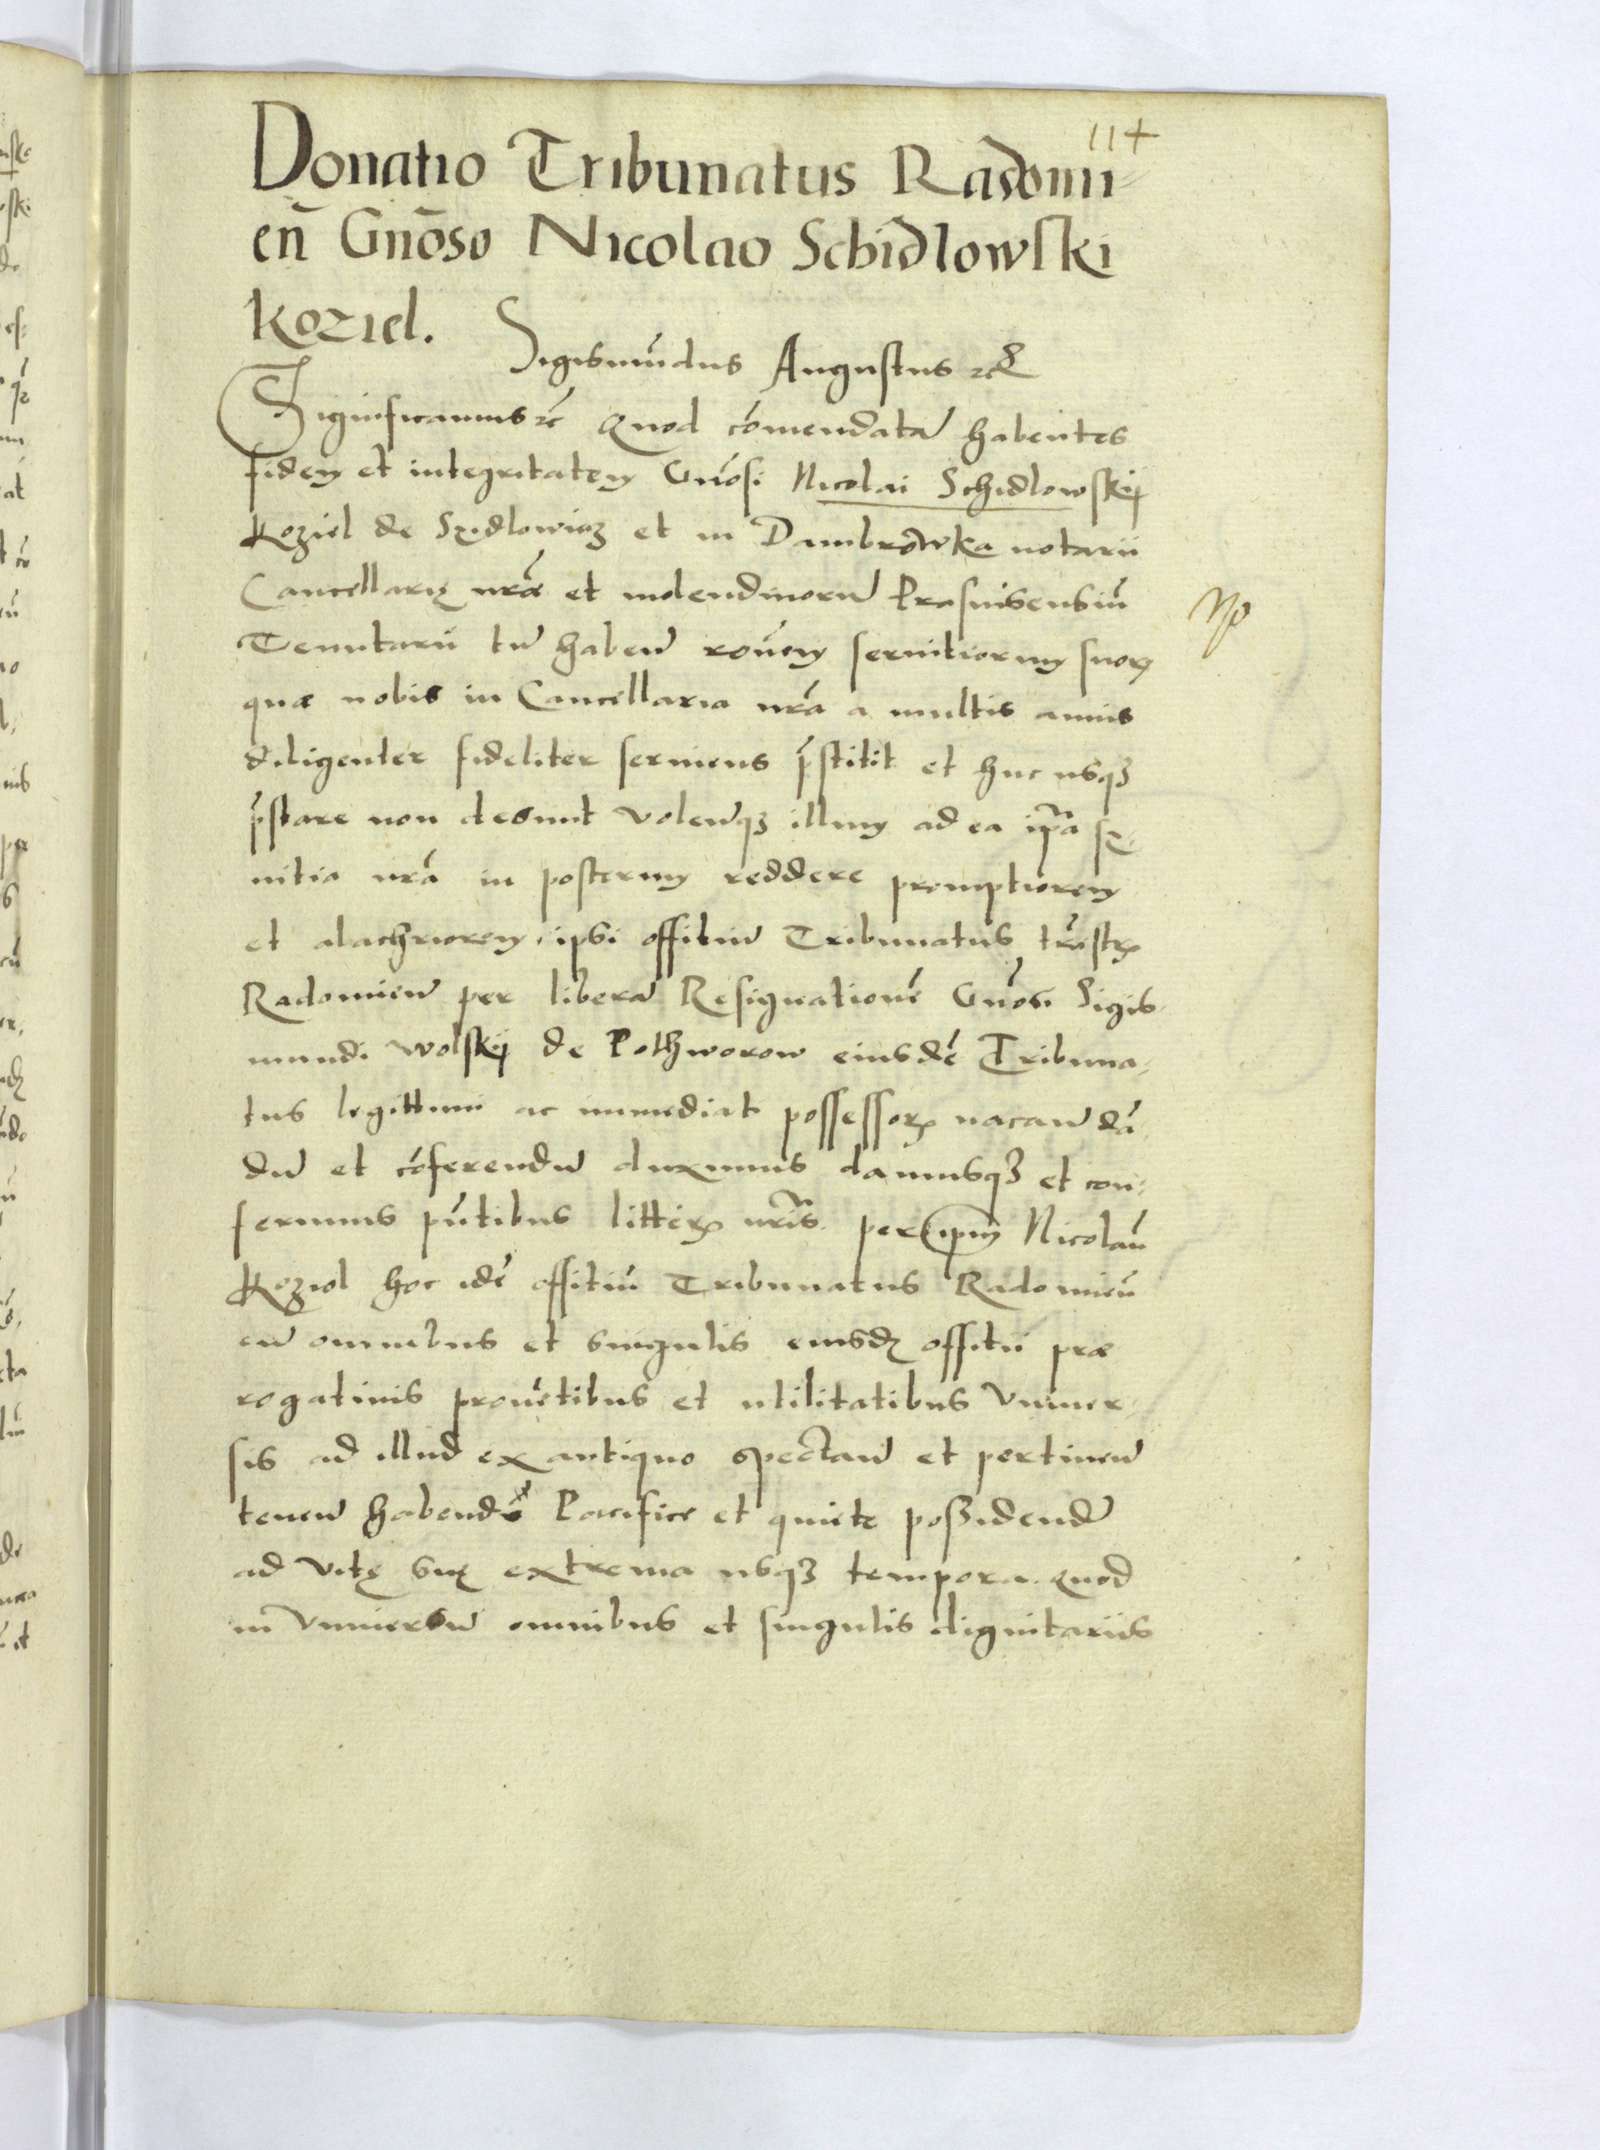 114
Donatio Tribunatus Radomi¬
en̄ Gn̄oso Nicolao Schidlowski
Koziel.
Sigismūdus Augustus ⁊c
Significamus ⁊c Quod cōmendatā habentes
fidem et integritatem Gn̄osi Nicolai Schidlowskij
Koziel de Szidlowiecz et in Dambrowka notarii
Cancellarię nr̄æ et molendinorū Prasnisensiū
Tenutarii tū habeñ rōnem seruitiorum suorꝝ
quæ nobis in Cancellaria nr̄a a multis annis
diligenter fideliter seruiens p̄stitit et huc usqꝫ
p̄stare non desinit Volen̄qꝫ illum ad ea ip̄a ser¬
uitia nr̄a in posterum reddere promptiorem
et alachriorem, ipsi offitiū Tribunatus trr̄estrꝭ
Radomien̄ per liberā Resignationē Gn̄osi Sigis¬
mundi Wolskij de Pothworow eiusdē Tribuna¬
tus legittimi ac immediat possessorꝭ uacan̄ dā¬
dū et cōferendū duximus damusqꝫ et con¬
ferimus pn̄tibus litterꝭ nr̄is. per ip̄m Nicolaū
Koziol hoc idē offitiū Tribunatus Radomien̄
cū omnibus et singulis eiusdꝫ offitii præ
rogatiuis prouētibus et utilitatibus Vniuer¬
sis ad illud ex antiquo spectan̄ et pertinen̄
tenen̄ habendū Pacifice et quiete possidendū
ad vitę suę extrema usqꝫ tempora. Quod
in Vniuersū omnibus et singulis dignitariis